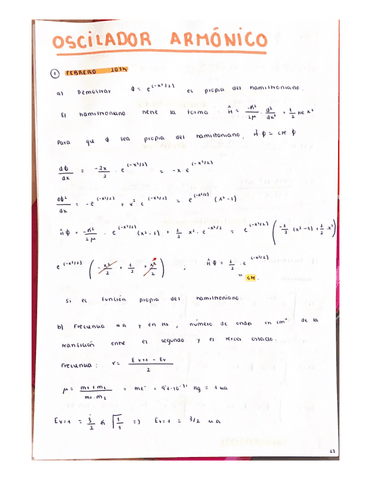 OSCILADOR ARMÓNICO
① FEBRERO 2014
a) Demostrar ϕ = e^(-x²/2) es propia del hamiltoniano.
El hamiltoniano tiene la forma : ĥ = -ℏ²/2μ · d²/dx² + 1/2 k x²
Para que ϕ sea propia del hamiltoniano, ĥ ϕ = cte ϕ
dϕ/dx = -2x/2 · e^(-x²/2) = -x e^(-x²/2)
dϕ²/dx = -e^(-x²/2) + x² e^(-x²/2) = e^(-x²/2) (x²-1)
ĥ ϕ = -ℏ²/2μ · e^(-x²/2) (x²-1) + 1/2 x² · e^-x²/2 = e^(-x²/2) (-1/2 (x²-1) + 1/2 x²)
e^(-x²/2) (-x²/2 + 1/2 + x²/2) ; ĥ ϕ = 1/2 · e^(-x²/2)
cte
Si es función propia del hamiltoniano.
b) Frecuencia u.a y en Hz, número de ondas en cm⁻¹ de la
transición entre el segundo y el tercer estado.
Frecuencia : ν = Ev+1 - Ev / 2
μ = m1+m2 / m1·m2 = me⁻ = 9,1·10⁻³¹ kg = 1 ua
=> Ev+1 = 7/2 ua